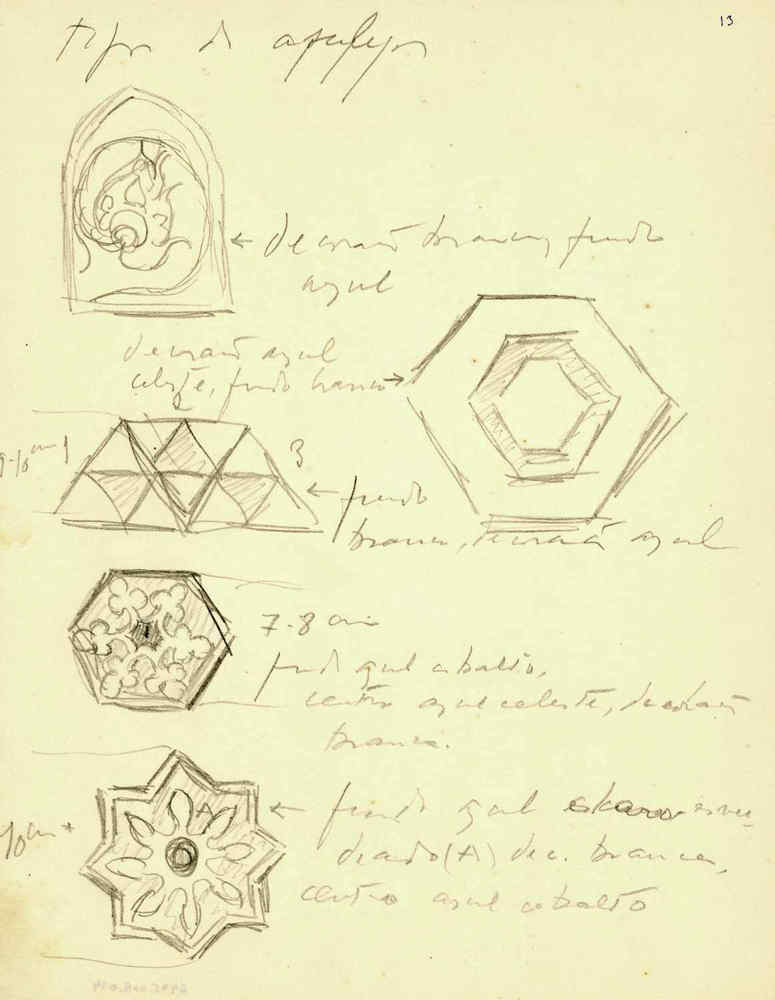 13
tipos de azulejos
decoração branca, fundo
azul
decoração azul
celeste, fundo branco
2
9-10 cm
1
3
fundo
branco, decoração azul
7-8 cm
fundo azul cobalto,
centro azul celeste, decoração
branca.
10 cm
A
fundo azul claro esver-
deado (A) dec. branca,
centro azul cobalto